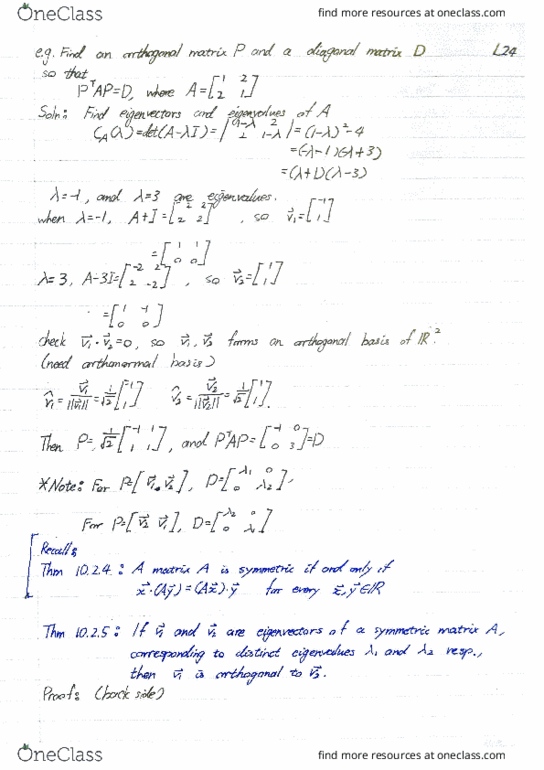 OneClass find more resources at oneclass.com
e.g. Find an orthogonal matrix P and a diagonal matrix D L24
so that
PᵀAP=D, where A=[1 2; 2 1]
Soln: Find eigenvectors and eigenvalues of A
C_A(λ)=det(A-λI)=|1-λ 2; 2 1-λ|=(1-λ)²-4
=(-λ-1)(-λ+3)
=(λ+1)(λ-3)
λ=-1, and λ=3 are eigenvalues.
when λ=-1, A+I=[2 2; 2 2], so v⃗₁=[-1; 1]
=[1 1; 0 0]
λ=3, A-3I=[-2 2; 2 -2], so v⃗₂=[1; 1]
=[1 -1; 0 0]
check v⃗₁·v⃗₂=0, so v⃗₁, v⃗₂ forms an orthogonal basis of ℝ².
(need orthonormal basis)
v̂₁=v⃗₁/||v⃗₁||=1/√2[-1; 1] v̂₂=v⃗₂/||v⃗₂||=1/√2[1; 1].
Then P=1/√2[-1 1; 1 1], and PᵀAP=[-1 0; 0 3]=D
*Note: For P=[v⃗₁ v⃗₂], D=[λ₁ 0; 0 λ₂],
For P=[v⃗₂ v⃗₁], D=[λ₂ 0; 0 λ₁]
Recall:
Thm 10.2.4: A matrix A is symmetric if and only if
x⃗·(Ay⃗)=(Ax⃗)·y⃗ for every x⃗,y⃗∈ℝ
Thm 10.2.5: If v⃗₁ and v⃗₂ are eigenvectors of a symmetric matrix A,
corresponding to distinct eigenvalues λ₁ and λ₂ resp.,
then v⃗₁ is orthogonal to v⃗₂.
Proof: (back side)
OneClass find more resources at oneclass.com